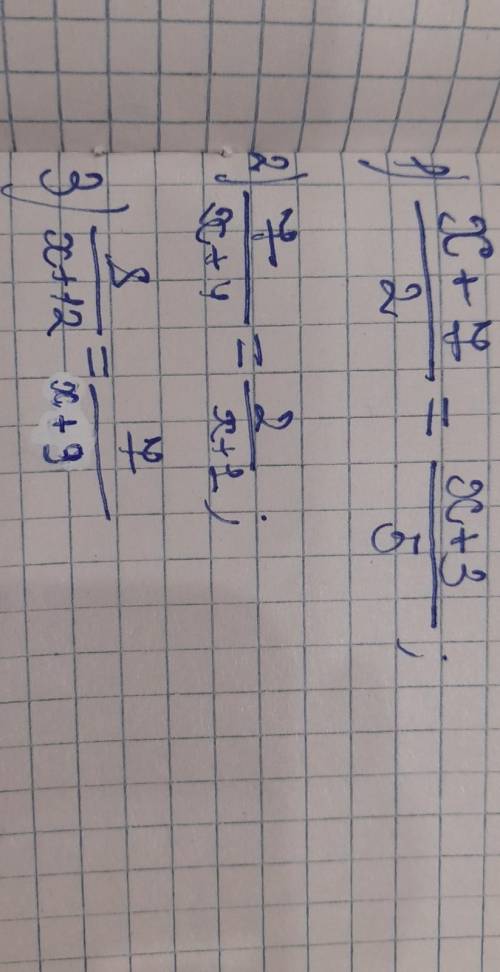 1) x+7/2 = x+3/5;
2) 7/x+4 = 2/x+1;
3) 8/x+12 = 7/x+9